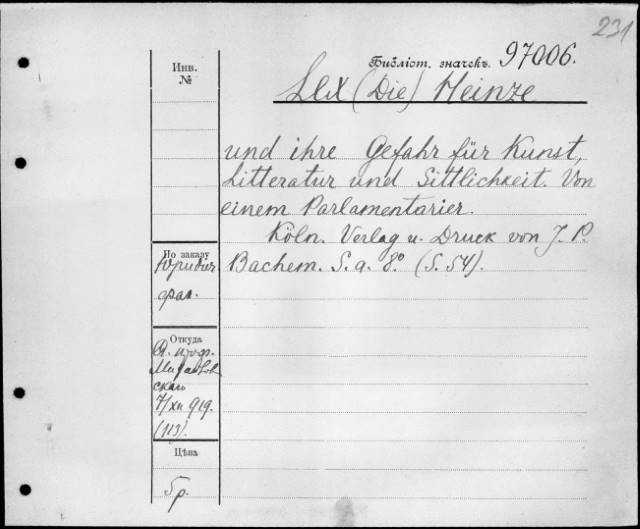 231
Инв.
№
Бібліот. значекъ. 97006.
Lex (Die) Heinze
und ihre Gefahr für Kunst,
Litteratur und Sittlichkeit. Von
einem Parlamentarier.
Köln. Verlag u. Druck von J. P.
Bachem. S. a. 8° (S. 54).
По заказу
Юридич.
фак.
Откуда
проф.
7/XII 919.
(113).
Цѣна
5 р.